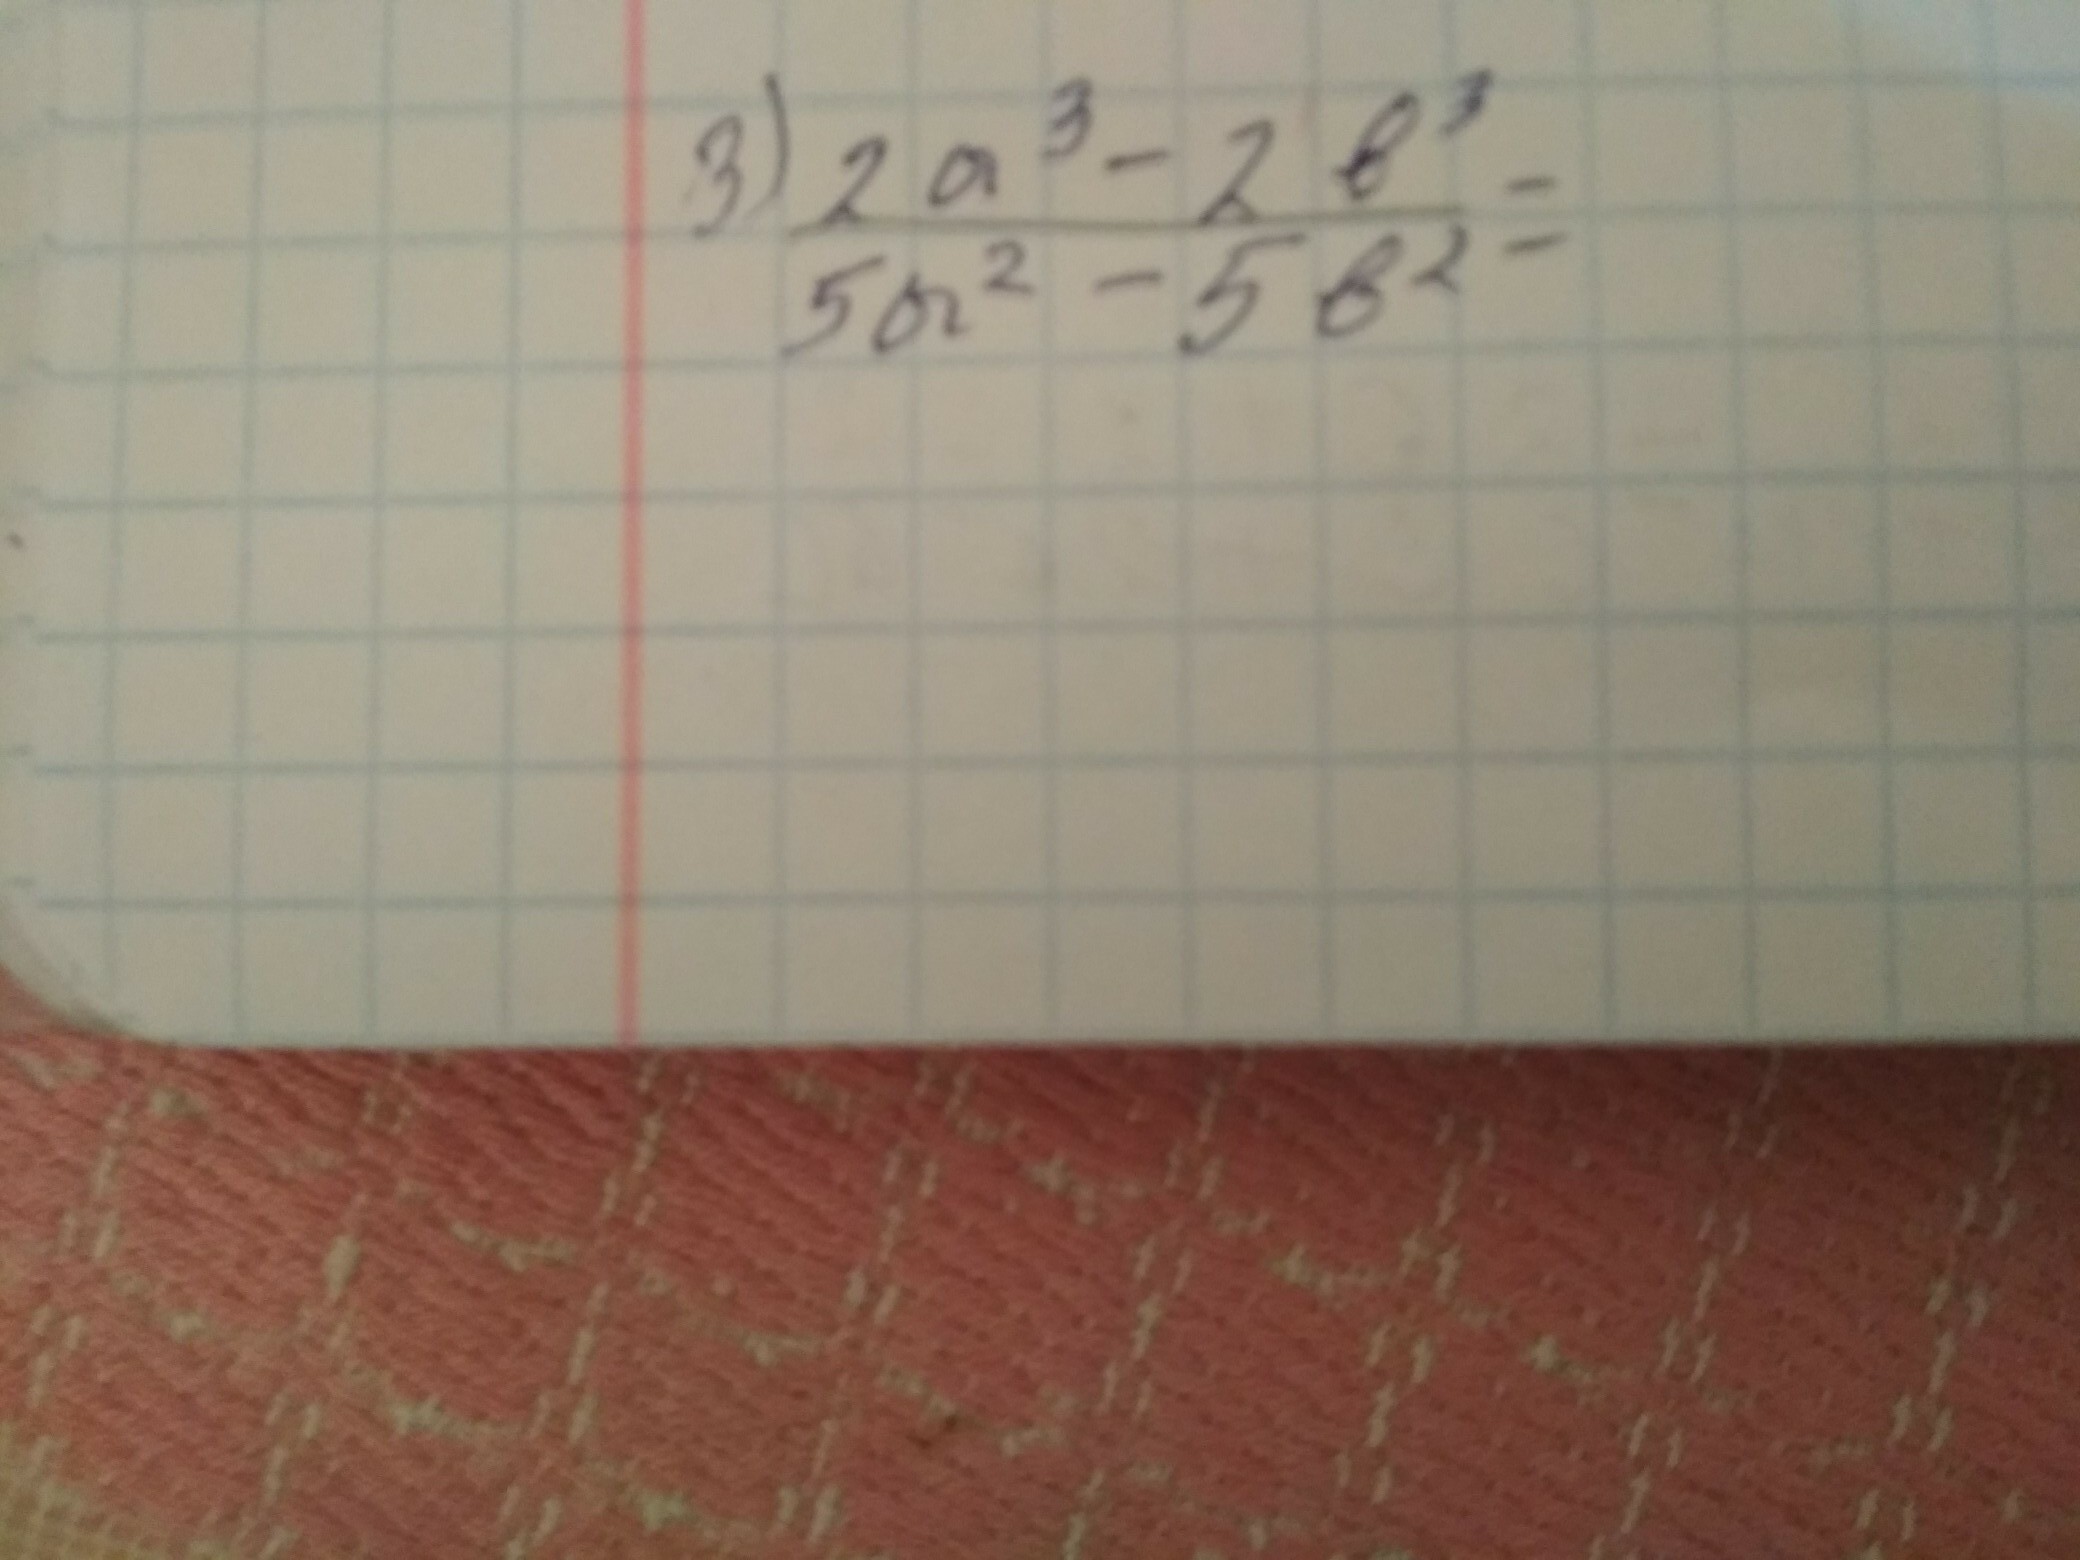 3) 2a³ - 2b³ =
5a² - 5b²